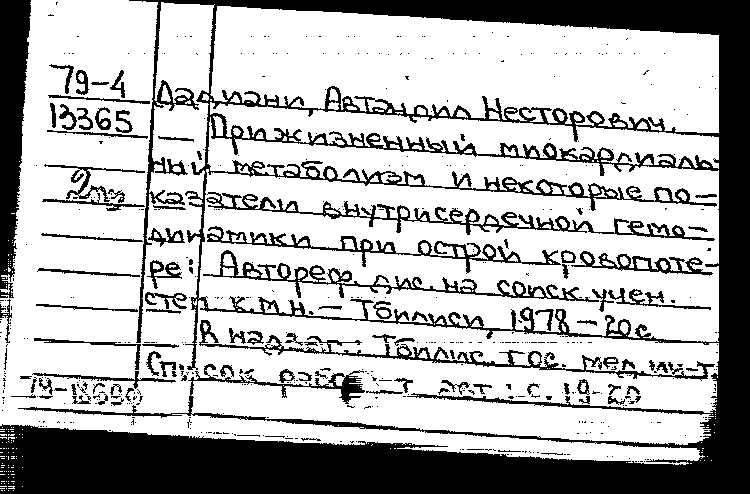 79-4
13365
Дадиани, Автандил Несторович.
— Прижизненный миокардиаль-
ный метаболизм и некоторые по-
казатели внутрисердечной гемо-
динамики при острой кровопоте-
ре: Автореф. дис. на соиск. учен.
степ. к.м.н. — Тбилиси, 1978 — 20с.
В надзаг.: Тбилис. гос. мед. ин-т.
Список работ авт.: с. 19-20